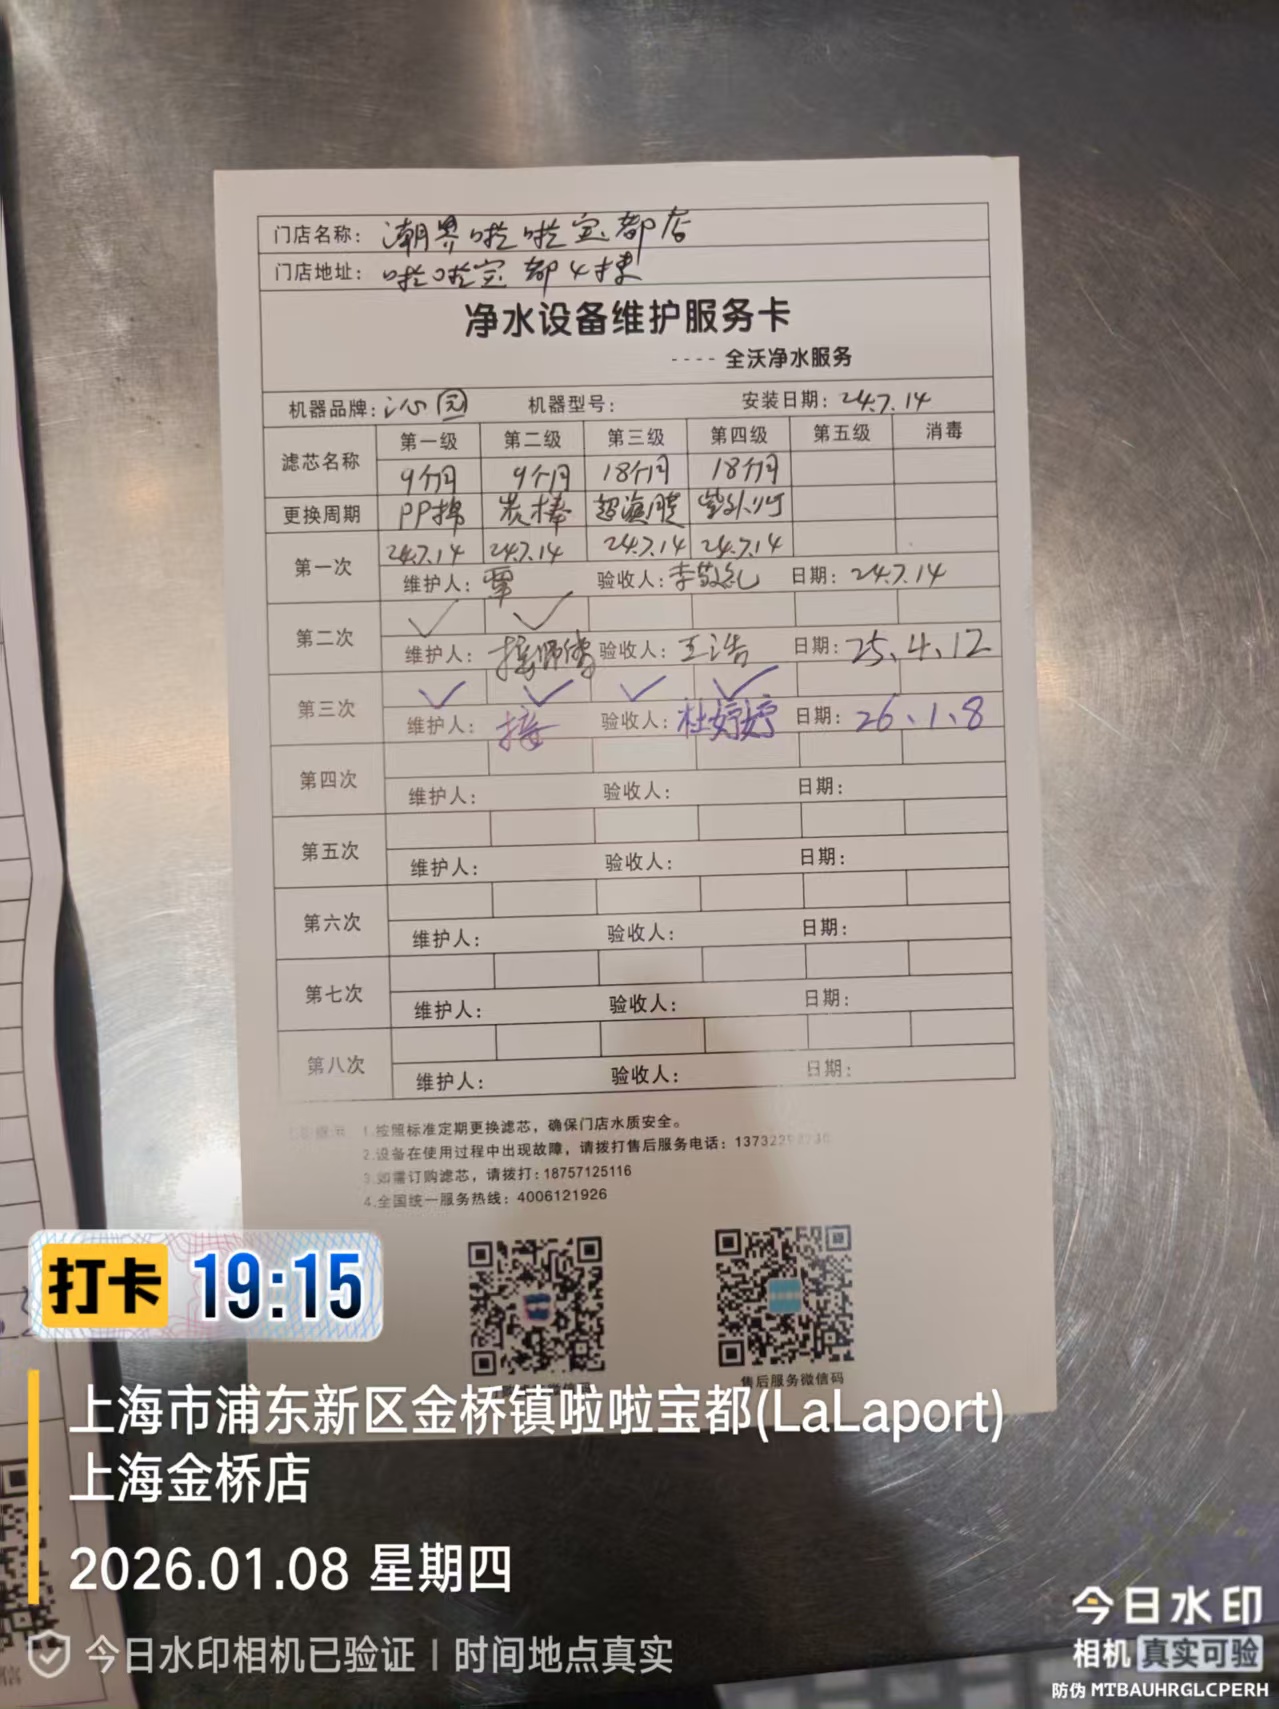 门店名称：潮界啦啦宝都店
门店地址：啦啦宝都4楼
净水设备维护服务卡
---- 全沃净水服务
机器品牌：沁园 机器型号： 安装日期：24.7.14
滤芯名称 第一级 第二级 第三级 第四级 第五级 消毒
9个月 9个月 18个月 18个月
更换周期 PP棉 炭棒 超滤膜
第一次 24.7.14 24.7.14 24.7.14 24.7.14
维护人：覃 验收人：李敬礼 日期：24.7.14
第二次 ✓ ✓
维护人： 验收人：王浩 日期：25.4.12
第三次 ✓ ✓ ✓ ✓
维护人：接 验收人：杜婷婷 日期：26.1.8
第四次
维护人： 验收人： 日期：
第五次
维护人： 验收人： 日期：
第六次
维护人： 验收人： 日期：
第七次
维护人： 验收人： 日期：
第八次
维护人： 验收人： 日期：
1.按照标准定期更换滤芯，确保门店水质安全。
2.设备在使用过程中出现故障，请拨打售后服务电话：
3.如需订购滤芯，请拨打：18757125116
4.全国统一服务热线：4006121926
售后服务微信码
打卡 19:15
上海市浦东新区金桥镇啦啦宝都(LaLaport)
上海金桥店
2026.01.08 星期四
今日水印相机已验证 | 时间地点真实
今日水印
相机 真实可验
防伪 MTBAUHRGLCPERH